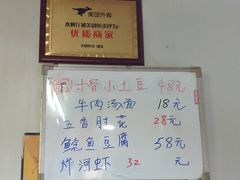 美团外卖
优质商家
小土豆 48元
牛肉汤面 18元
五香肘花 28元
鲶鱼豆腐 58元
炸河虾 32元